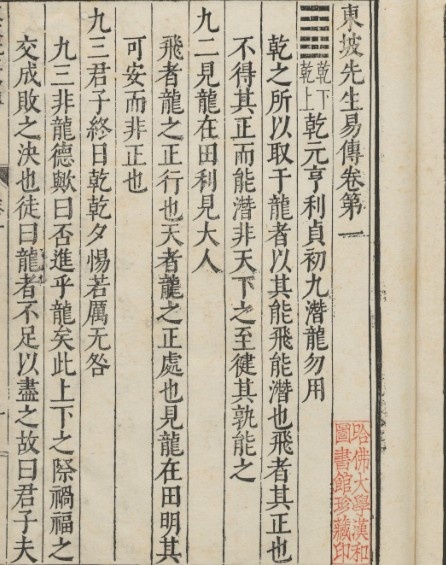 東坡先生易傳卷第一
乾下乾上 乾元亨利貞初九潛龍勿用
乾之所以取于龍者以其能飛能潛也飛者其正也
不得其正而能潛非天下之至健其孰能之
九二見龍在田利見大人
飛者龍之正行也天者龍之正處也見龍在田明其
可安而非正也
九三君子終日乾乾夕惕若厲无咎
九三非龍德歟曰否進乎龍矣此上下之際禍福之
交成敗之決也徒曰龍者不足以盡之故曰君子夫
哈佛大學漢和
圖書館珍藏印